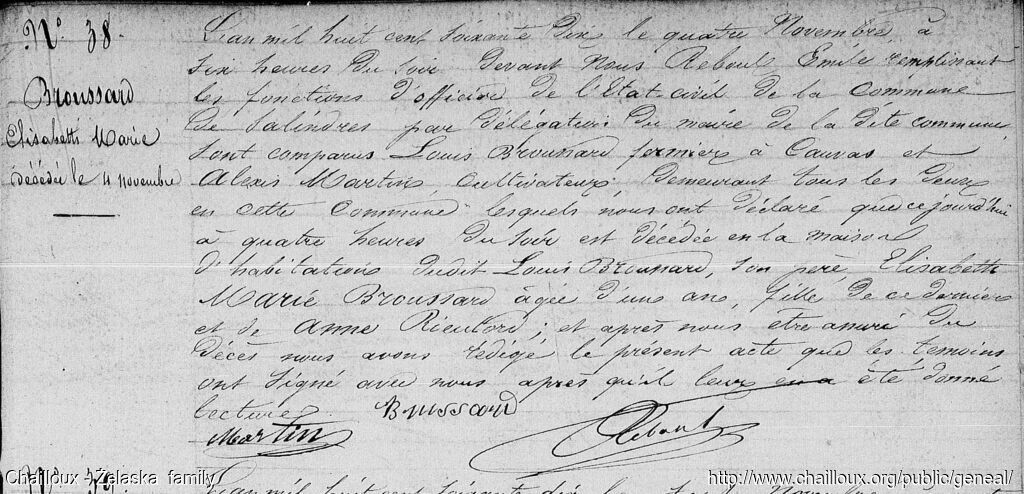 N.º 38.
Broussard
Elisabeth Marie
décédée le 4 novembre
L'an mil huit cent soixante dix le quatre Novembre, à
six heures du soir devant Nous Reboul Emile remplissant
les fonctions d'officier de l'Etat-civil de la Commune
de Salindres par délégation du maire de la dite commune
sont comparus Louis Broussard fermier à Cauvas et
Alexis Martin, cultivateur, demeurant tous les deux
en cette Commune lesquels nous ont déclaré que ce jourd'hui
à quatre heures du soir est décédée en la maison
d'habitation dudit Louis Broussard, son père Elisabeth
Marie Broussard âgée d'une an, fille de ce dernier
et de Anne Rieutord; et après nous être assuré du
décès nous avons rédigé le présent acte que les temoins
ont signé avec nous après qu'il leur en a été donné
lecture.
Brussard
Martin
Reboul
N.º 39
L'an mil huit cent soixante dix le
Novembre
Chailloux - Zelaska family
http://www.chailloux.org/public/geneal/